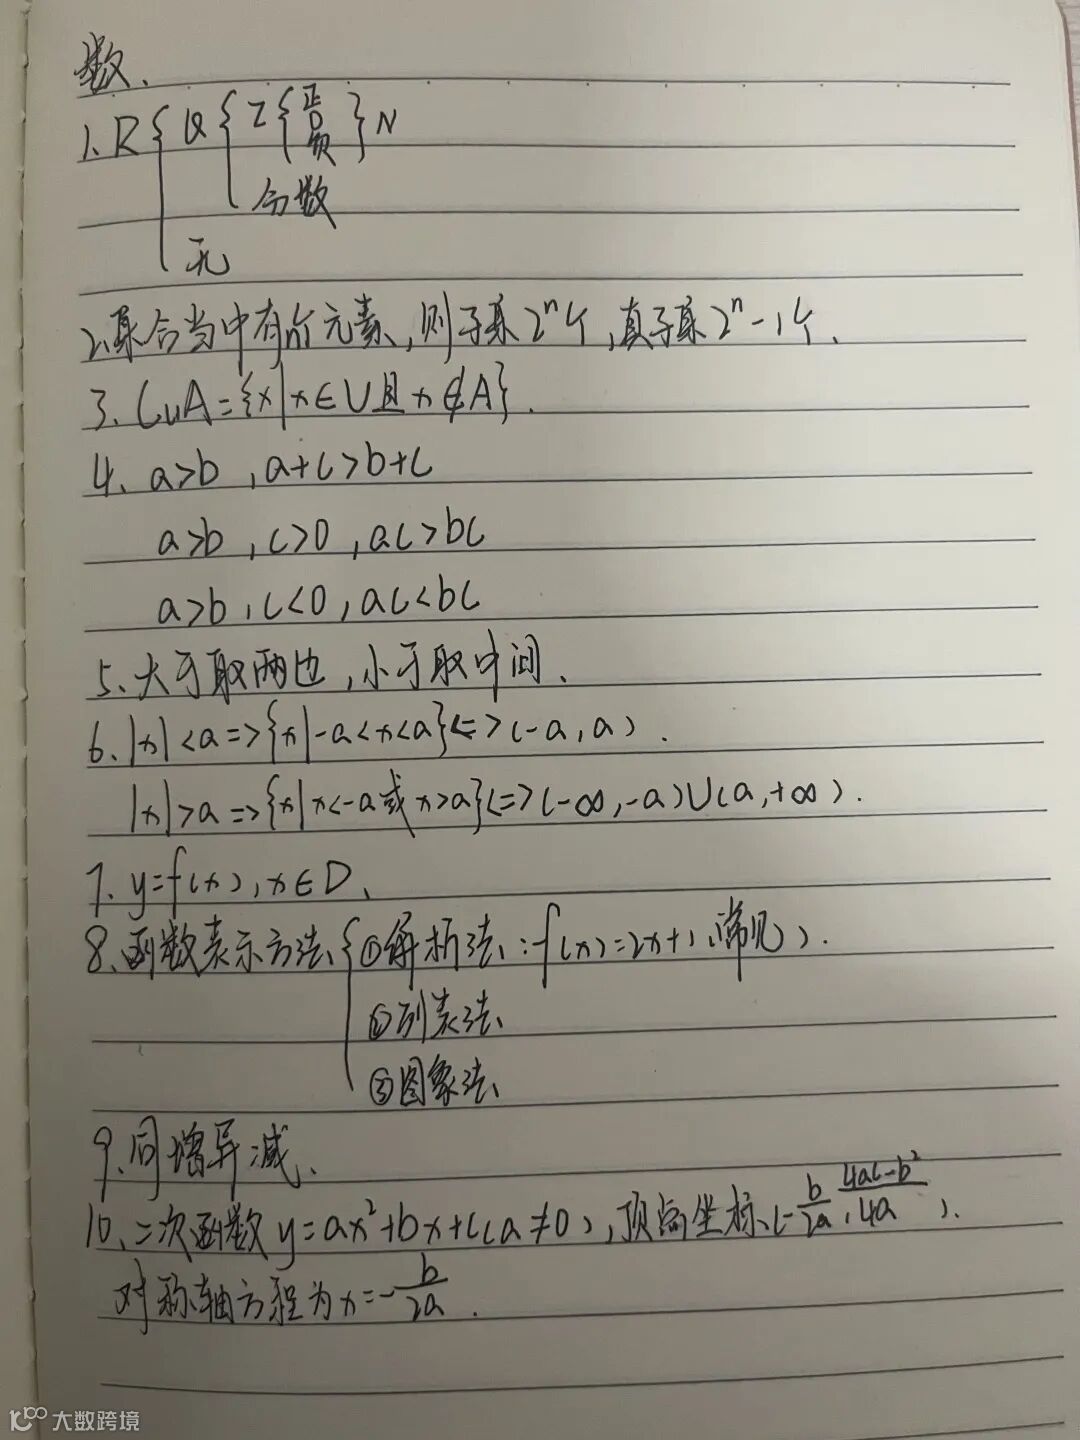 数、
1、R { Q { Z { 正 0 负 } N
分数
无
2、集合当中有n个元素,则子集2ⁿ个,真子集2ⁿ-1个.
3. CuA={x|x∈U且x∉A}.
4、a>b,a+c>b+c
a>b,c>0,ac>bc
a>b,c<0,ac<bc
5、大于取两边,小于取中间.
6、|x|<a=>{x|-a<x<a}<=>(-a,a).
|x|>a=>{x|x<-a或x>a}<=>(-∞,-a)∪(a,+∞).
7. y=f(x),x∈D、
8、函数表示方法 { ①解析法:f(x)=2x+1(常见).
②列表法、
③图象法、
9、同增异减、
10、二次函数y=ax²+bx+c(a≠0),顶点坐标(-b/2a,4ac-b²/4a).
对称轴方程为x=-b/2a.
10100 大数跨境